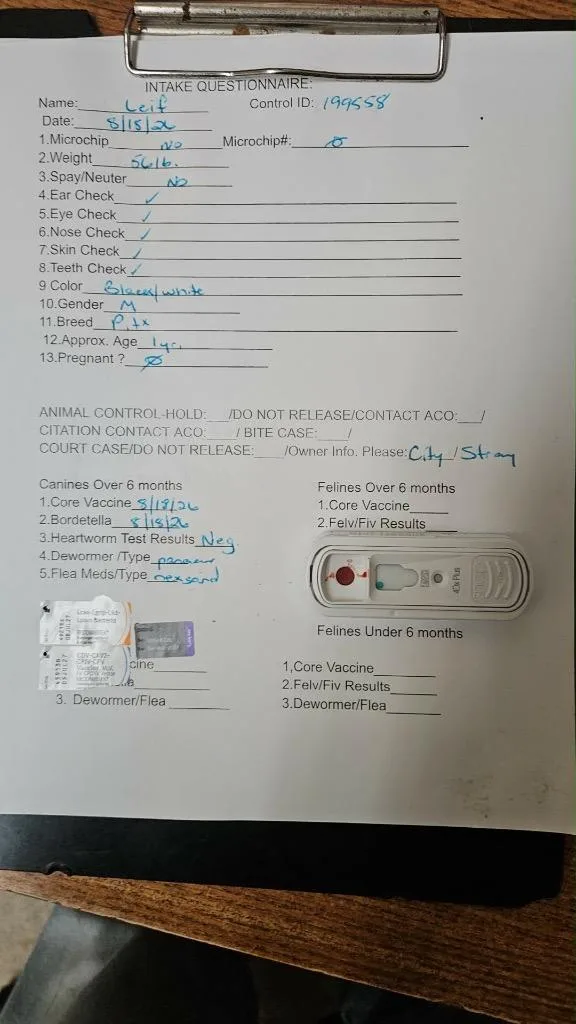 INTAKE QUESTIONNAIRE:
Name: Leif Control ID: 199558
Date: 8/18/26
1.Microchip NO Microchip#: Ø
2.Weight 56lb.
3.Spay/Neuter NO
4.Ear Check ✓
5.Eye Check ✓
6.Nose Check ✓
7.Skin Check ✓
8.Teeth Check ✓
9 Color Black/white
10.Gender M
11.Breed P.tx
12.Approx. Age 1yr.
13.Pregnant ? Ø
ANIMAL CONTROL-HOLD:___/DO NOT RELEASE/CONTACT ACO:___/
CITATION CONTACT ACO:____/ BITE CASE:____/
COURT CASE/DO NOT RELEASE:____/Owner Info. Please: City / Stray
Canines Over 6 months
1.Core Vaccine 8/18/26
2.Bordetella 8/18/26
3.Heartworm Test Results Neg
4.Dewormer /Type panacur
5.Flea Meds/Type nexgard
Felines Over 6 months
1.Core Vaccine
2.Felv/Fiv Results
4Dx Plus
CDV-CAV2-
cine
3. Dewormer/Flea
Felines Under 6 months
1,Core Vaccine
2.Felv/Fiv Results
3.Dewormer/Flea